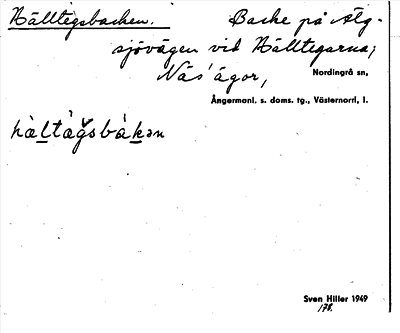 Hälltegsbacken. Backe på Älg-
sjövägen vid Hälltegarna;
Näs' ägor, Nordingrå sn,
Ångermanl. s. doms. tg., Västernorrl. l.
hàltàgsbákən
Sven Hiller 1949
178.